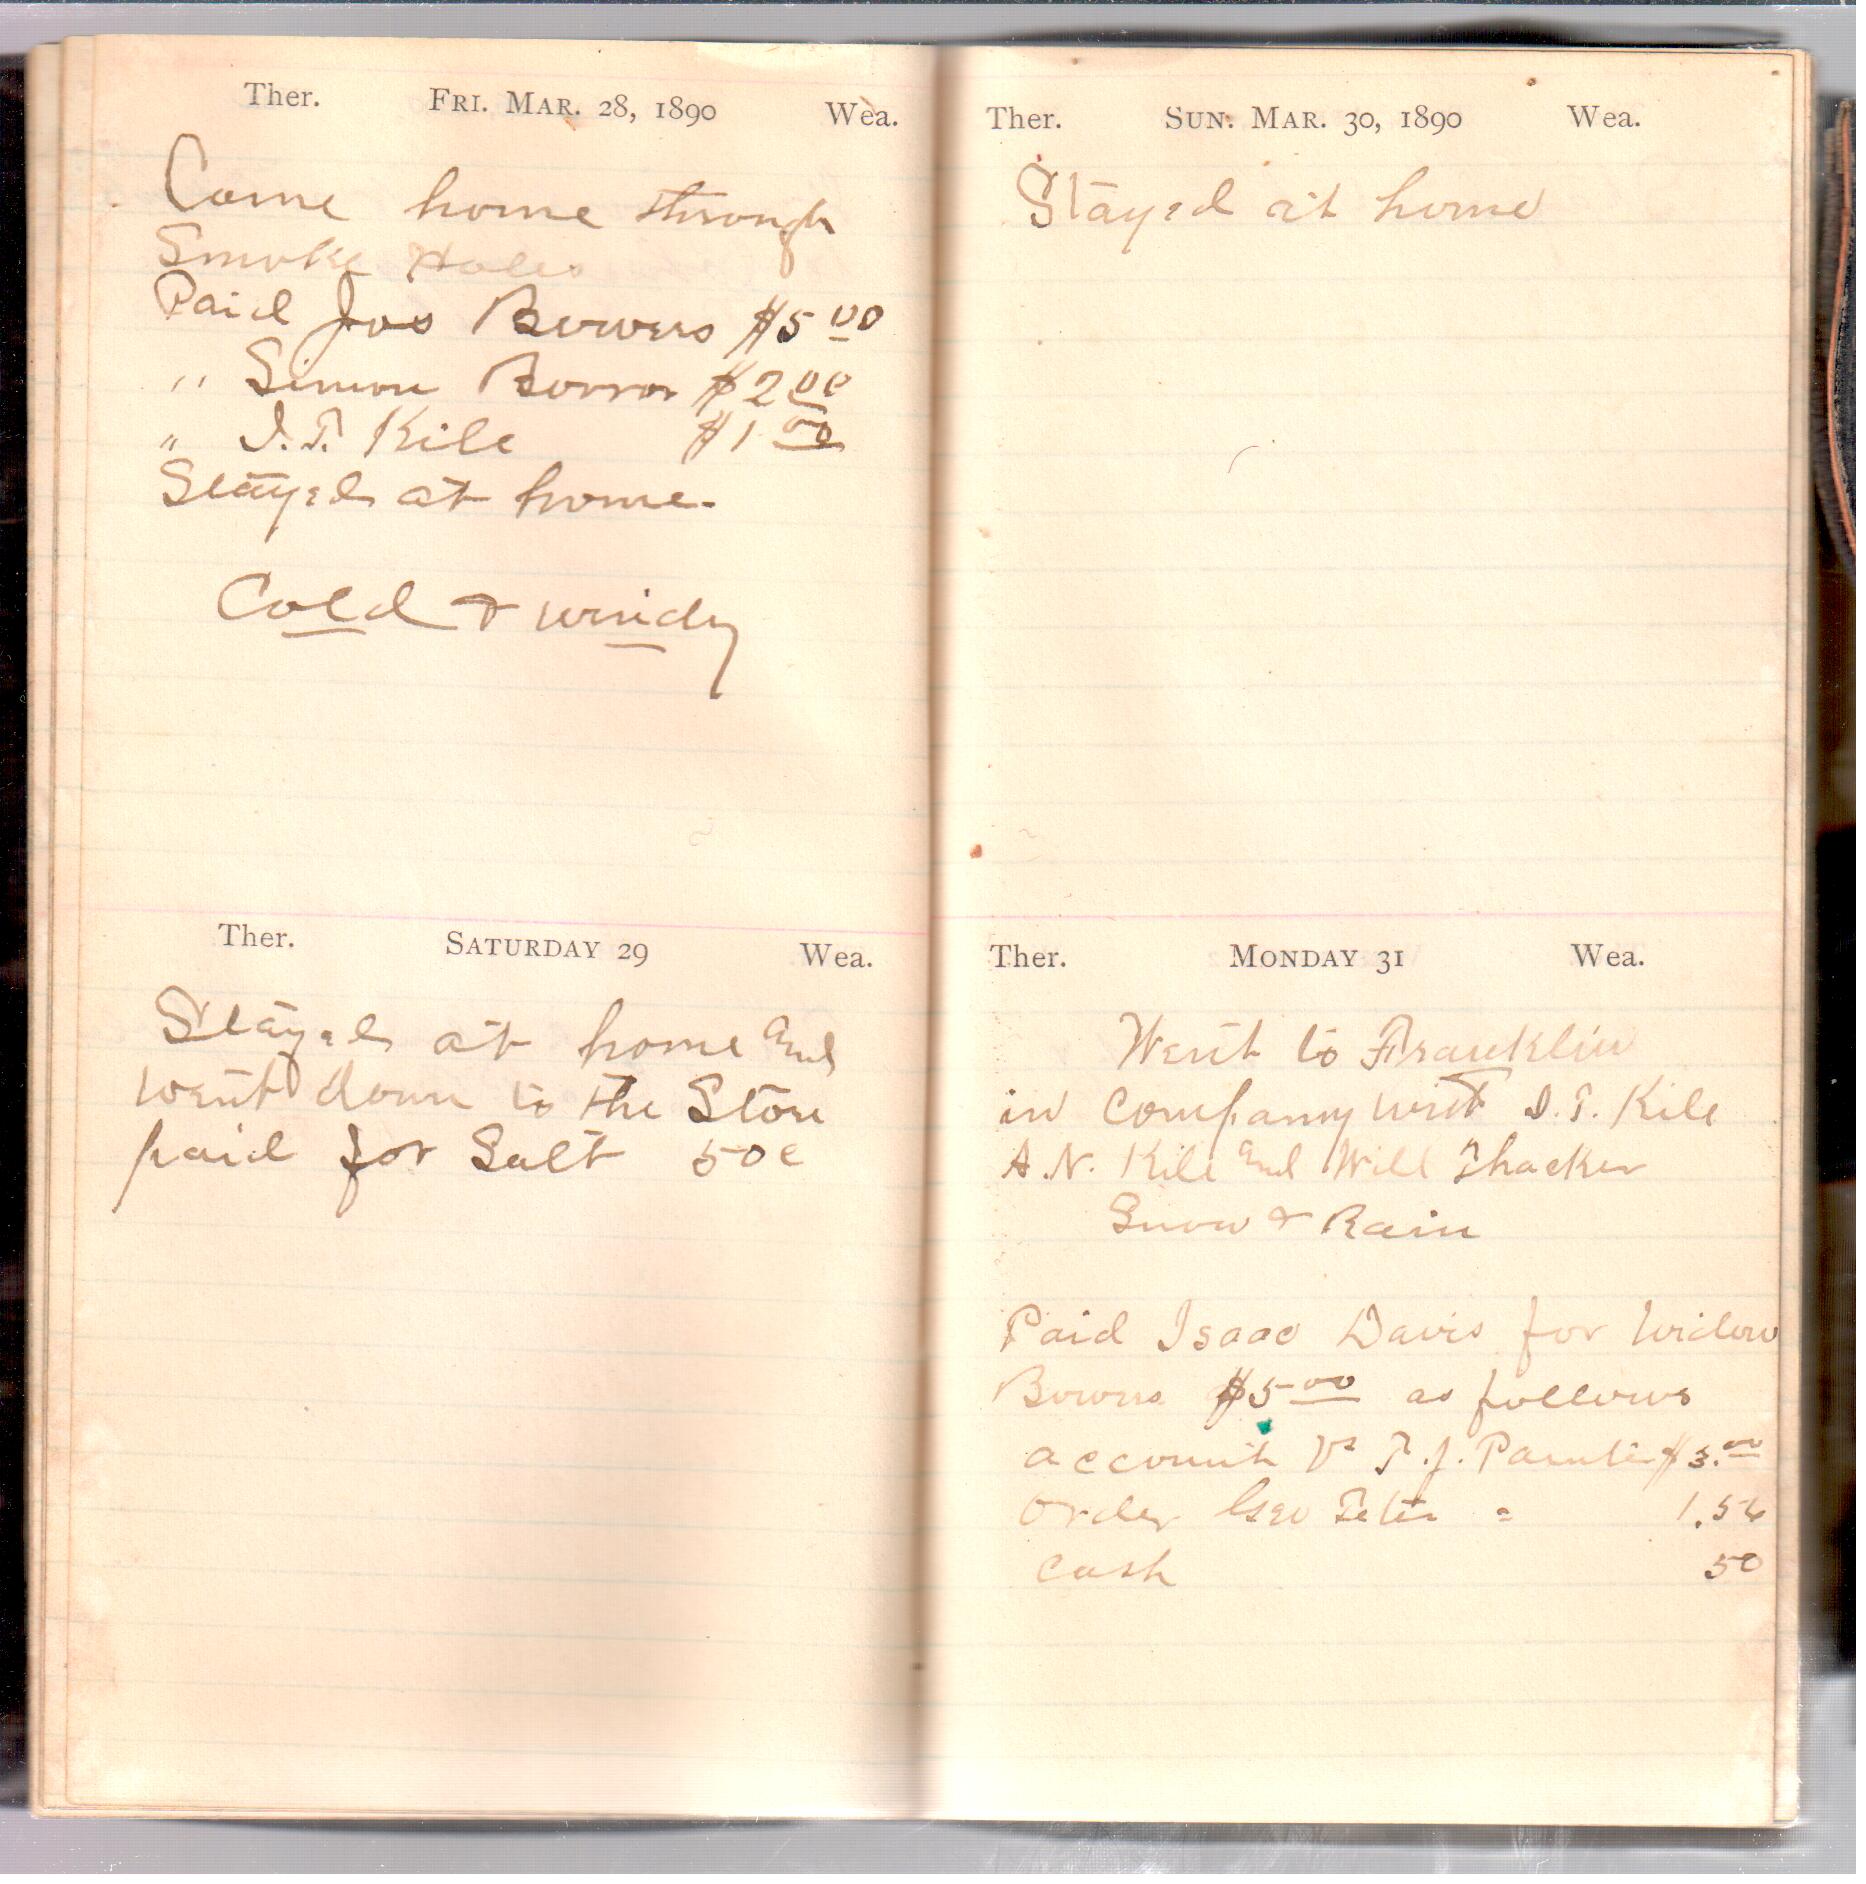 Ther. FRI. MAR. 28, 1890 Wea.
Came home through
Smoke Holes
Paid Jos Bowers $5 00
,, Simon Borror $2 00
,, I.T. Kile $1 00
Stayed at home.
Cold & windy
Ther. SATURDAY 29 Wea.
Stayed at home and
went down to the Store
paid for Salt 50c
Ther. SUN. MAR. 30, 1890 Wea.
Stayed at home
Ther. MONDAY 31 Wea.
Went to Franklin
in company with I.T. Kile
A.N. Kile and Will Thacker
Snow & Rain
Paid Isaac Davis for Widow
Bowers $5 00 as follows
account Vs T.J. $3.00
Order Geo Teter =
cash 50